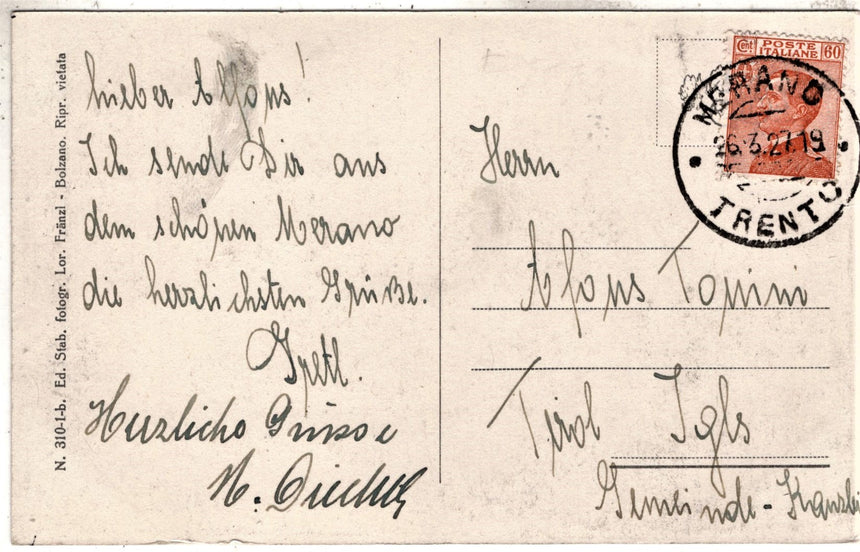 N. 310-1-b. Ed. Stab. fotogr. Lor. Fränzl - Bolzano. Ripr. vietata
Lieber Alfons!
Ich sende Dir aus
dem schönen Merano
die herzlichsten Grüße.
Gretl.
Herzliche Grüsse
M.
Cent POSTE ITALIANE 60
MERANO
26.3.27.19
TRENTO
Herrn
Alfons Tonini
Tirol Igls
Gemeinde-Kanzlei